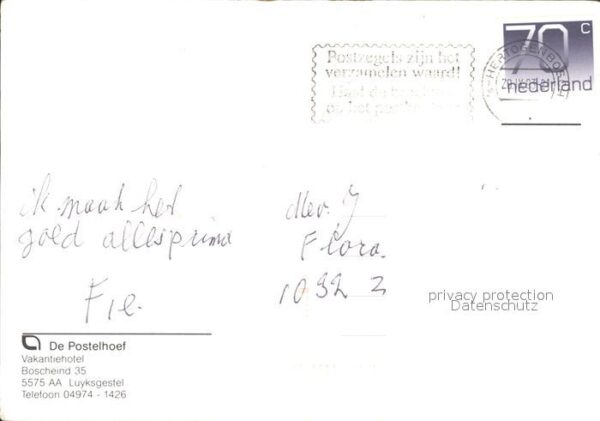 Postzegels zijn het
verzamelen waard!
's-HERTOGENBOSCH
70 c
nederland
ik maak het
goed alles prima
Fie.
Mev. J
Flora.
1092 Z
privacy protection
Datenschutz
De Postelhoef
Vakantiehotel
Boscheind 35
5575 AA Luyksgestel
Telefoon 04974 - 1426